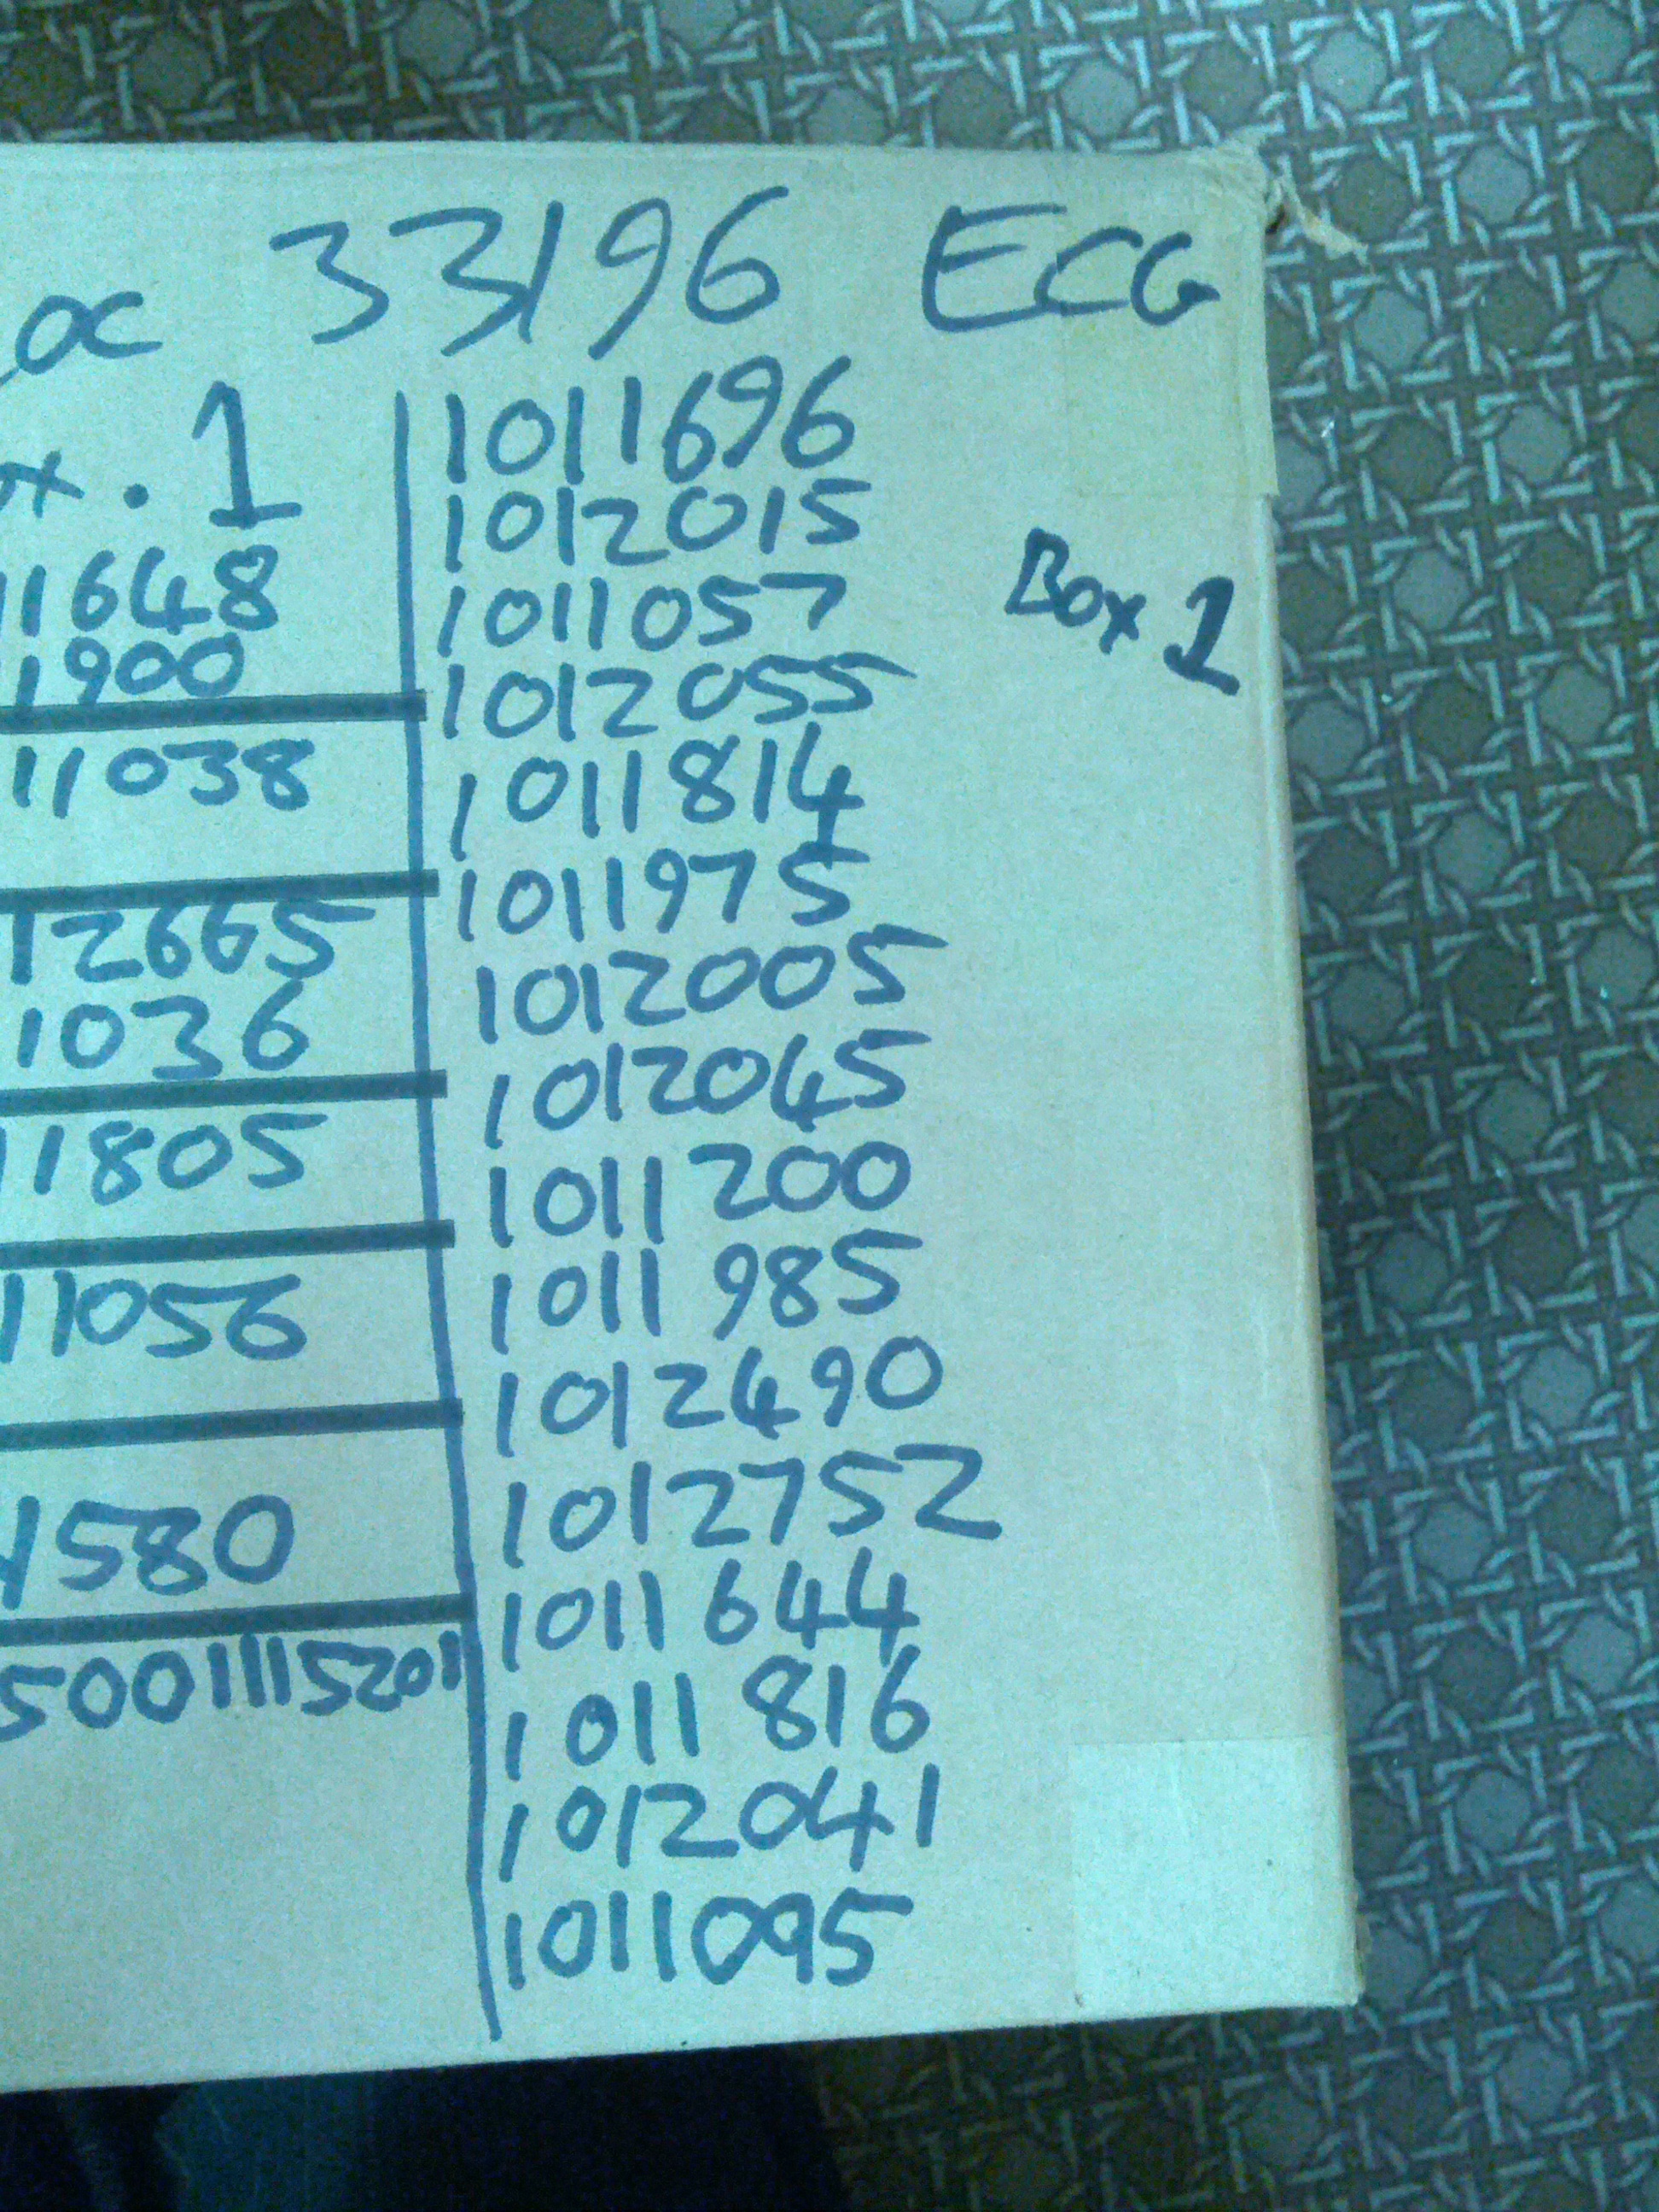 oc 33196 ECG
x. 1
11648
1900
11038
12665
1036
11805
11056
1580
5001115201
1011696
1012015
1011057
1012055
1011814
1011975
1012005
1012045
1011200
1011985
1012490
1012752
1011644
1011816
1012041
1011095
Box 1